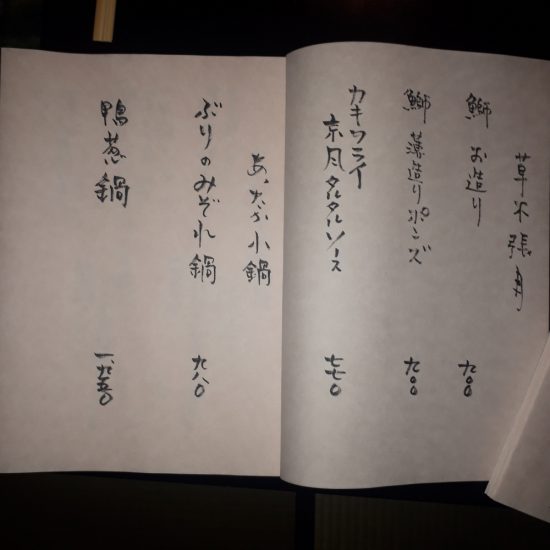 草木張月
鰤 お造り 九〇〇
鰤 薄造りポンズ 九〇〇
カキフライ
京風タルタルソース 七七〇
あったか小鍋
ぶりのみぞれ鍋 九八〇
鴨葱鍋 一、九五〇